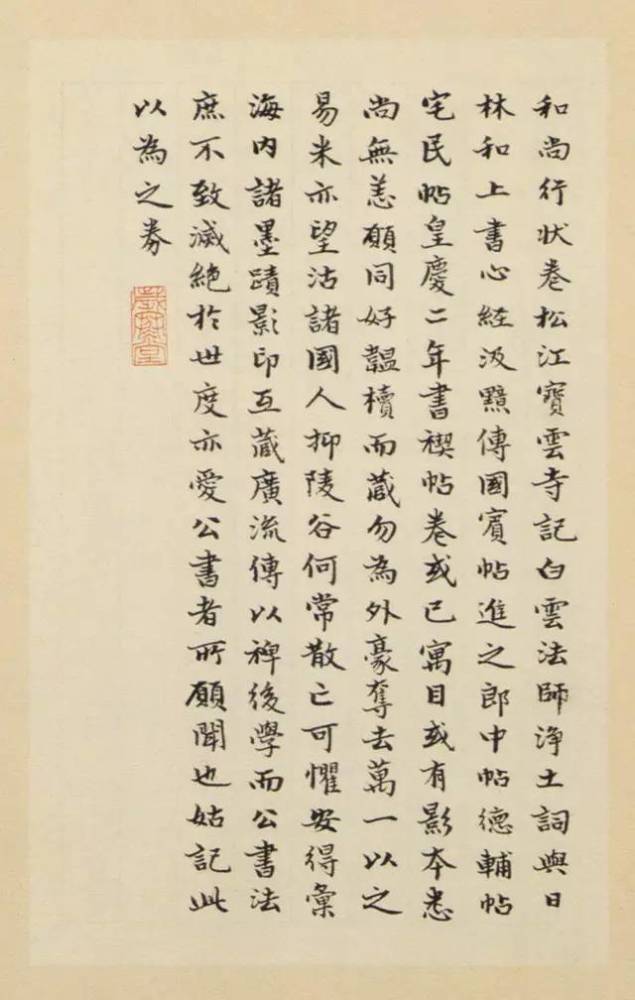 和尚行状卷松江寶雲寺記白雲法師淨土詞與日
林和上書心經汲黯傳國賓帖進之郎中帖德輔帖
宅民帖皇慶二年書禊帖卷或已寓目或有影本悉
尚無恙願同好韞櫝而藏勿為外豪奪去萬一以之
易米亦望沽諸國人抑陵谷何常散亡可懼安得彙
海内諸墨蹟影印互藏廣流傳以裨後學而公書法
庶不致滅絕於世度亦愛公書者所願聞也姑記此
以為之券